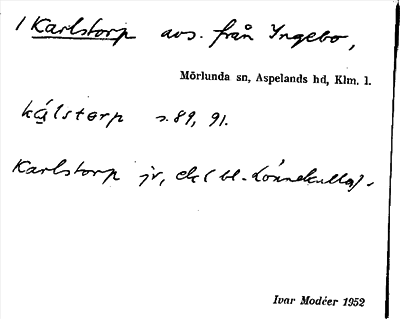 / Karlstorp avs. från Yngebo,
Mörlunda sn, Aspelands hd, Klm. l.
kálstorp s. 89, 91.
Karlstorp jr, ek ( bl. Lönnekulla).
Ivar Modéer 1952